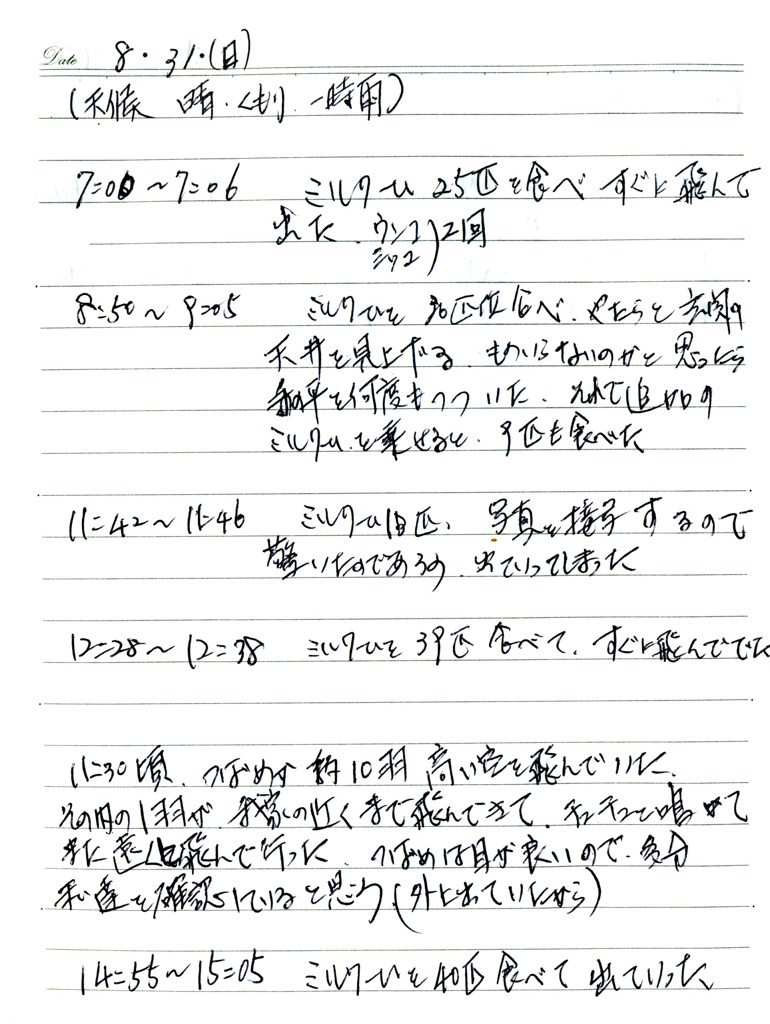 Date 8・31・(日)
(天候 晴・くもり 一時雨)
7=00〜7=06 ミルワーム 25匹を食べ すぐに飛んで
出た. ウンコ ミッコ)2回
8=50〜9=05 ミルワームを 30匹位食べ、やたらと玄関の
天井を見上げる. もういらないのかと思ったら
私の手を何度もつついた. それで追加の
ミルワームを乗せると、9匹も食べた
11=42〜11=46 ミルワーム18匹、写真を接写するので
驚いたのであろう、出ていってしまった
12=28〜12=38 ミルワームを 39匹 食べて、すぐに飛んででた
11=30頃、つばめが 約10羽 高い空を飛んでいた.
その内の1羽が、我家の近くまで飛んできて、チュチュと鳴いて
また遠くに飛んで行った、つばめは目が良いので、多分
私達を確認していると思う(外に出ていたから)
14=55〜15=05 ミルワームを 40匹 食べて 出ていった、